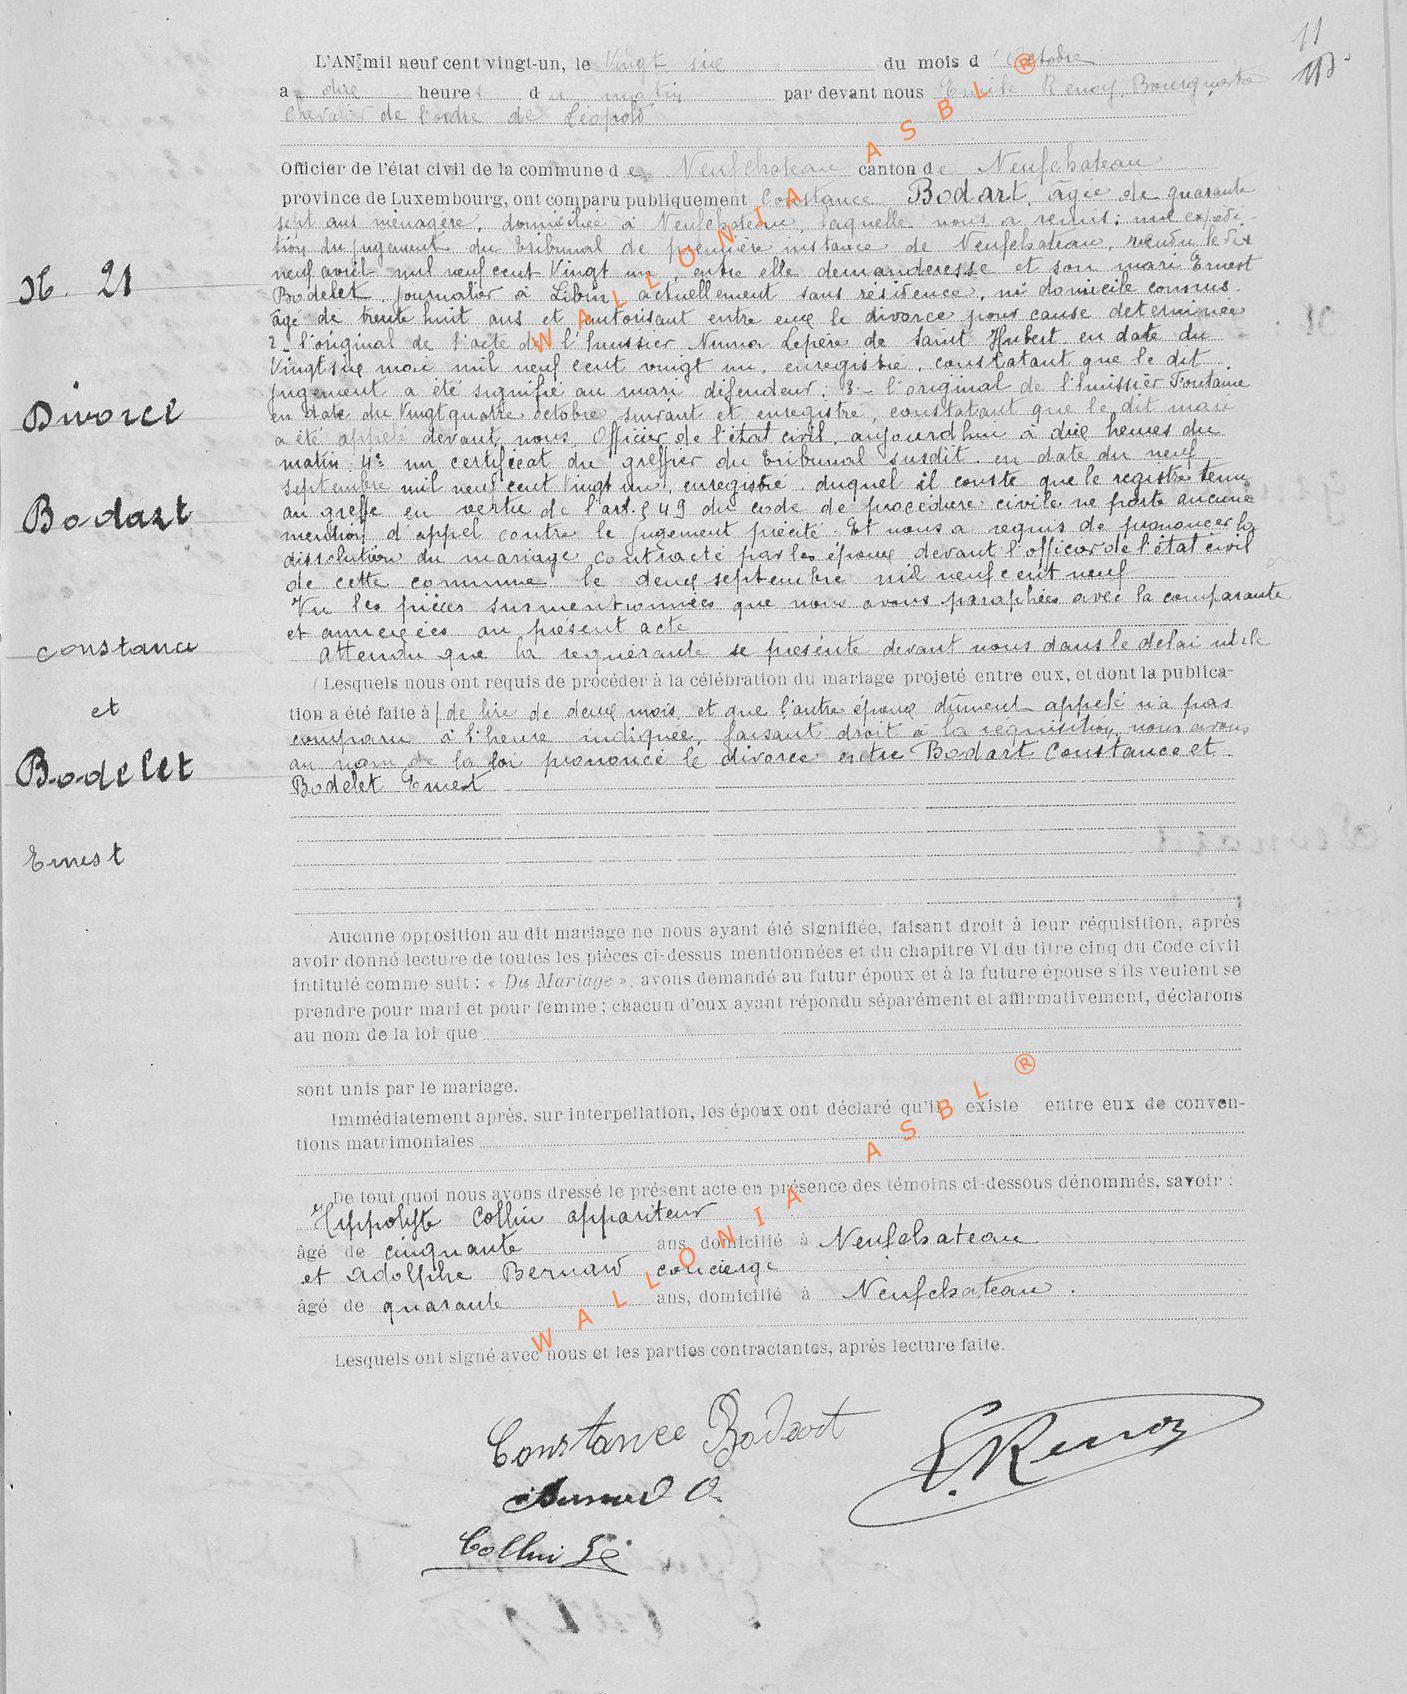 11
L'AN mil neuf cent vingt-un, le vingt six du mois d'Octobre
a dix heures du matin par devant nous Emile Renoy, Bourgmestre
chevalier de l'ordre de Léopold
Officier de l'état civil de la commune de Neufchateau canton de Neufchateau
province de Luxembourg, ont comparu publiquement Constance Bodart, agée de quarante
sept ans ménagère, domiciliée à Neufchateau, laquelle nous a remis: une expédi-
tion du jugement du tribunal de première instance de Neufchateau, rendu le dix
neuf avril mil neuf cent vingt un, entre elle demanderesse et son mari Ernest
Bodelet, journalier à Libin, actuellement sans résidence, ni domicile connus
âgé de trente huit ans et autorisant entre eux le divorce pour cause déterminée
2- l'original de l'acte de l'huissier Numa Lepère de Saint Hubert en date du
vingt six mai mil neuf cent vingt un, enregistré, constatant que le dit
jugement a été signifié au mari défendeur: 3- l'original de l'huissier Fontaine
en date du vingt quatre octobre suivant et enregistré, constatant que le dit mari
a été appelé devant nous, Officier de l'état civil, aujourd'hui à dix heures du
matin 4: un certificat du greffier du tribunal susdit en date du neuf
septembre mil neuf cent vingt un, enregistré duquel il conste que le registre tenu
au greffe en vertu de l'art. 549 du code de procédure civile ne porte aucune
mention d'appel contre le jugement précité. Et nous a requis de prononcer la
dissolution du mariage contracté par les époux devant l'officier de l'état civil
de cette commune le deux septembre mil neuf cent neuf
Vu les pièces surmentionnées que nous avons paraphées avec la comparante
et annexées au présent acte
Attendu que la requérante se présente devant nous dans le délai utile
(Lesquels nous ont requis de procéder à la célébration du mariage projeté entre eux, et dont la publica-
tion a été faite à) de lire de deux mois, et que l'autre époux dûment appelé n'a pas
comparu à l'heure indiquée, faisant droit à la réquisition, nous avons
au nom de la loi prononcé le divorce entre Bodart Constance et
Bodelet Ernest
N. 21
Divorce
Bodart
Constance
et
Bodelet
Ernest
Aucune opposition au dit mariage ne nous ayant été signifiée, faisant droit à leur réquisition, après
avoir donné lecture de toutes les pièces ci-dessus mentionnées et du chapitre VI du titre cinq du Code civil
intitulé comme suit : « Du Mariage », avons demandé au futur époux et à la future épouse s'ils veulent se
prendre pour mari et pour femme ; chacun d'eux ayant répondu séparément et affirmativement, déclarons
au nom de la loi que
sont unis par le mariage.
Immédiatement après, sur interpellation, les époux ont déclaré qu'il existe entre eux de conven-
tions matrimoniales
De tout quoi nous avons dressé le présent acte en présence des témoins ci-dessous dénommés, savoir :
Hippolyte Collin appariteur
âgé de cinquante ans, domicilié à Neufchateau
et Adolphe Bernard concierge
âgé de quarante ans, domicilié à Neufchateau.
Lesquels ont signé avec nous et les parties contractantes, après lecture faite.
Constance Bodart
E. Renoy
Bernard A.
Collin
WALLONIA ASBL ®
WALLONIA ASBL ®